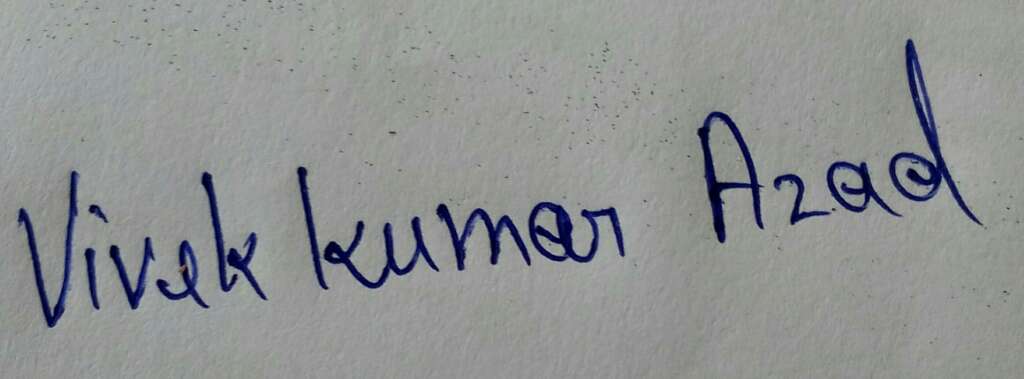 Vivek kumar Azad